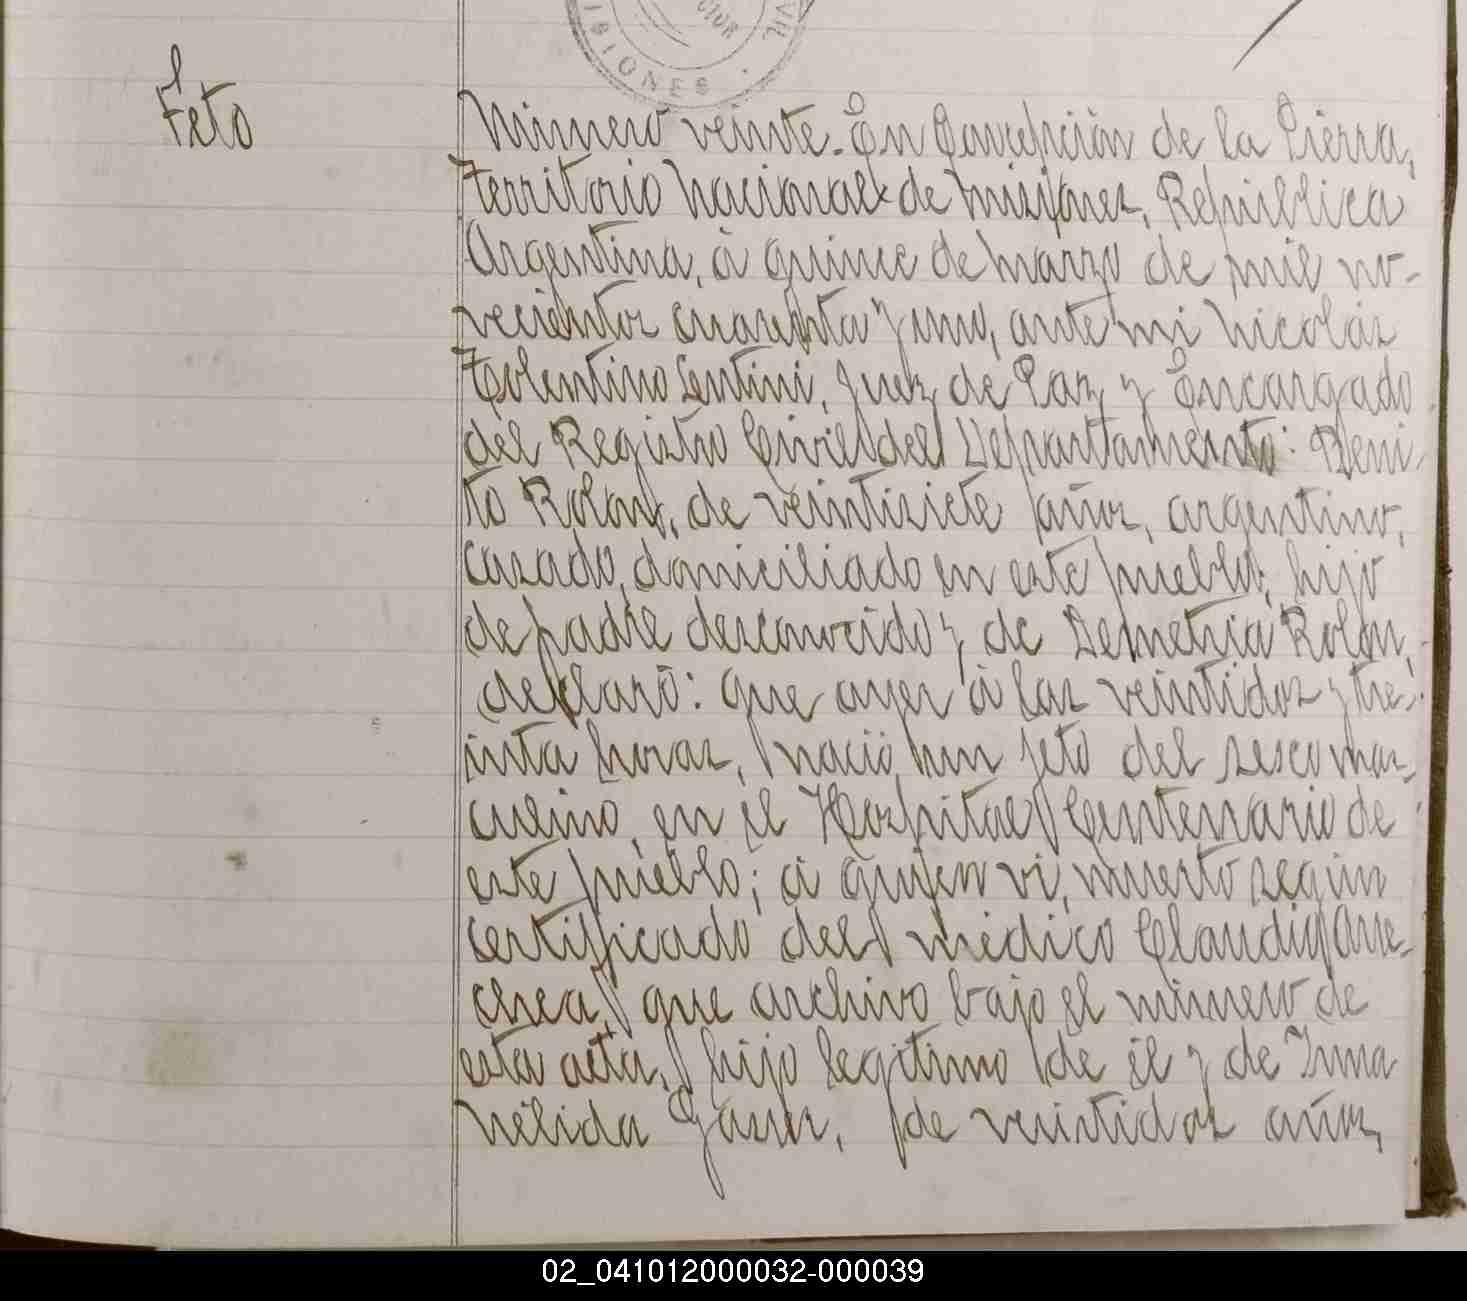 Feto
Número veinte. En Concepción de la Sierra,
Territorio Nacional de Misiones, República
Argentina, á quince de marzo de mil no-
vecientos cuarenta y uno, ante mi Nicolás
Tolentino Sentini, Juez de Paz y Encargado
del Registro Civil del Departamento: Beni-
to Rolon, de veintisiete años, argentino,
casado, domiciliado en este pueblo; hijo
de padre desconocido y de Demetria Rolon,
declaró: que ayer á las veintidos y tre-
inta horas, nació un feto del sesco mas-
culino, en el Hospital Centenario de
este pueblo; á quien vi, muerto según
certificado del médico Claudio
que archivo bajo el número de
esta acta, hijo legítimo de él y de Irma
Nélida de veintidos años,
02_041012000032-000039